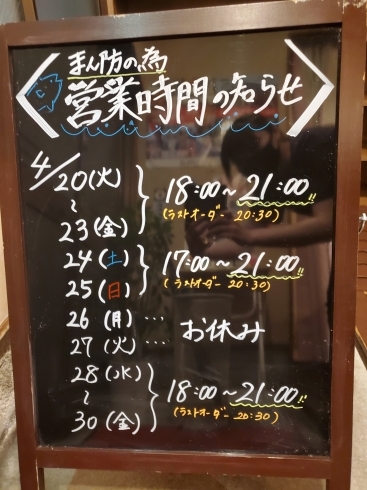 まん防の為
営業時間の知らせ
4/20(火)
~
23(金)
18:00~21:00!!
(ラストオーダー 20:30)
24(土)
25(日)
17:00~21:00!!
(ラストオーダー 20:30)
26(月)…
27(火)…
お休み
28(水)
~
30(金)
18:00~21:00!!
(ラストオーダー 20:30)